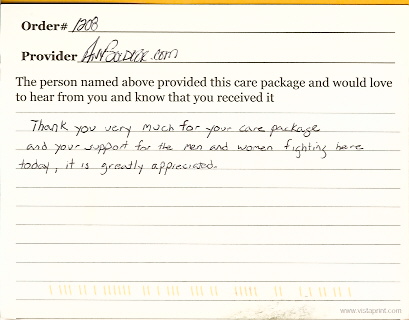 Order# 1208
Provider AnySoldier.com
The person named above provided this care package and would love
to hear from you and know that you received it
Thank you very much for your care package
and your support for the men and women fighting here
today, it is greatly appreciated.
www.vistaprint.com